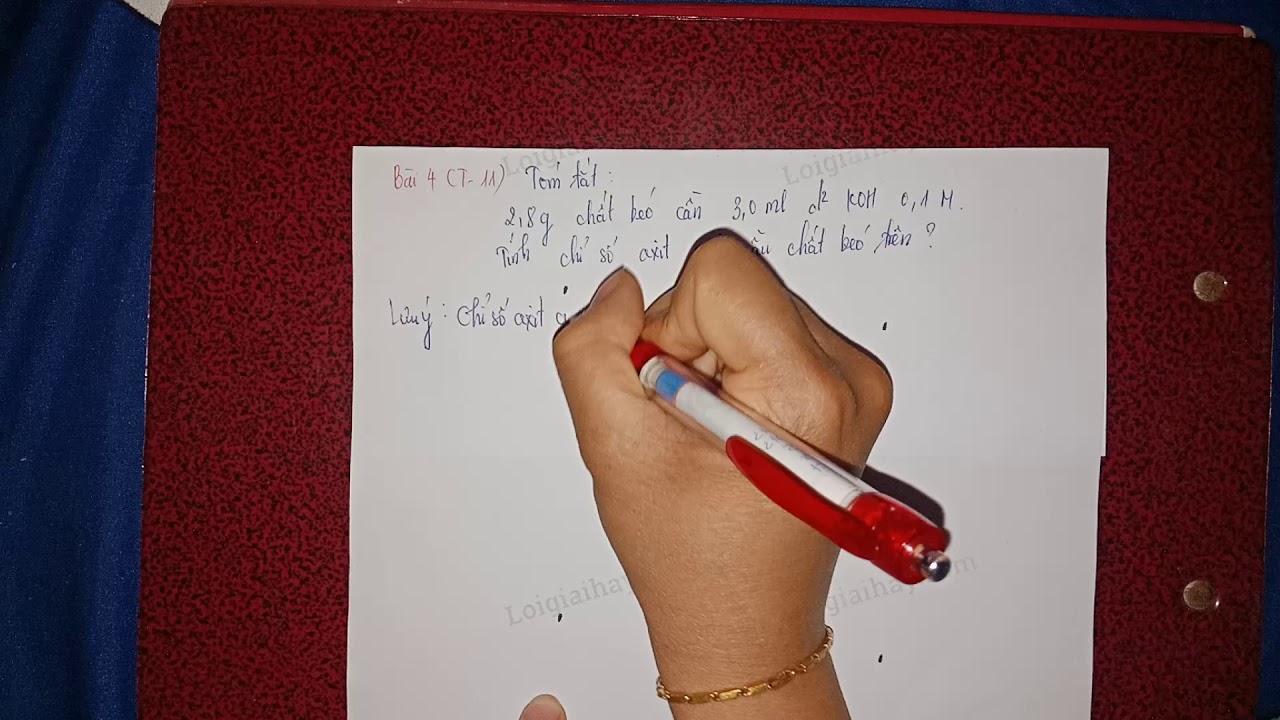 Bài 4 (T-11) Tóm tắt:
2,8g chất béo cần 3,0 ml d² KOH 0,1 M.
Tính chỉ số axit chất béo trên?
Lưu ý: Chỉ số axit
Loigiaiha
Loigiaihay
Loigiaihay
giaihay om